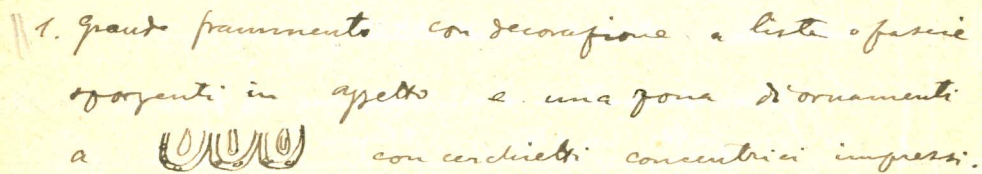 1. Grande frammento con decorazione a liste o fascie
sporgenti in aggetto e una zona di ornamenti
a con cerchietti concentrici impressi.